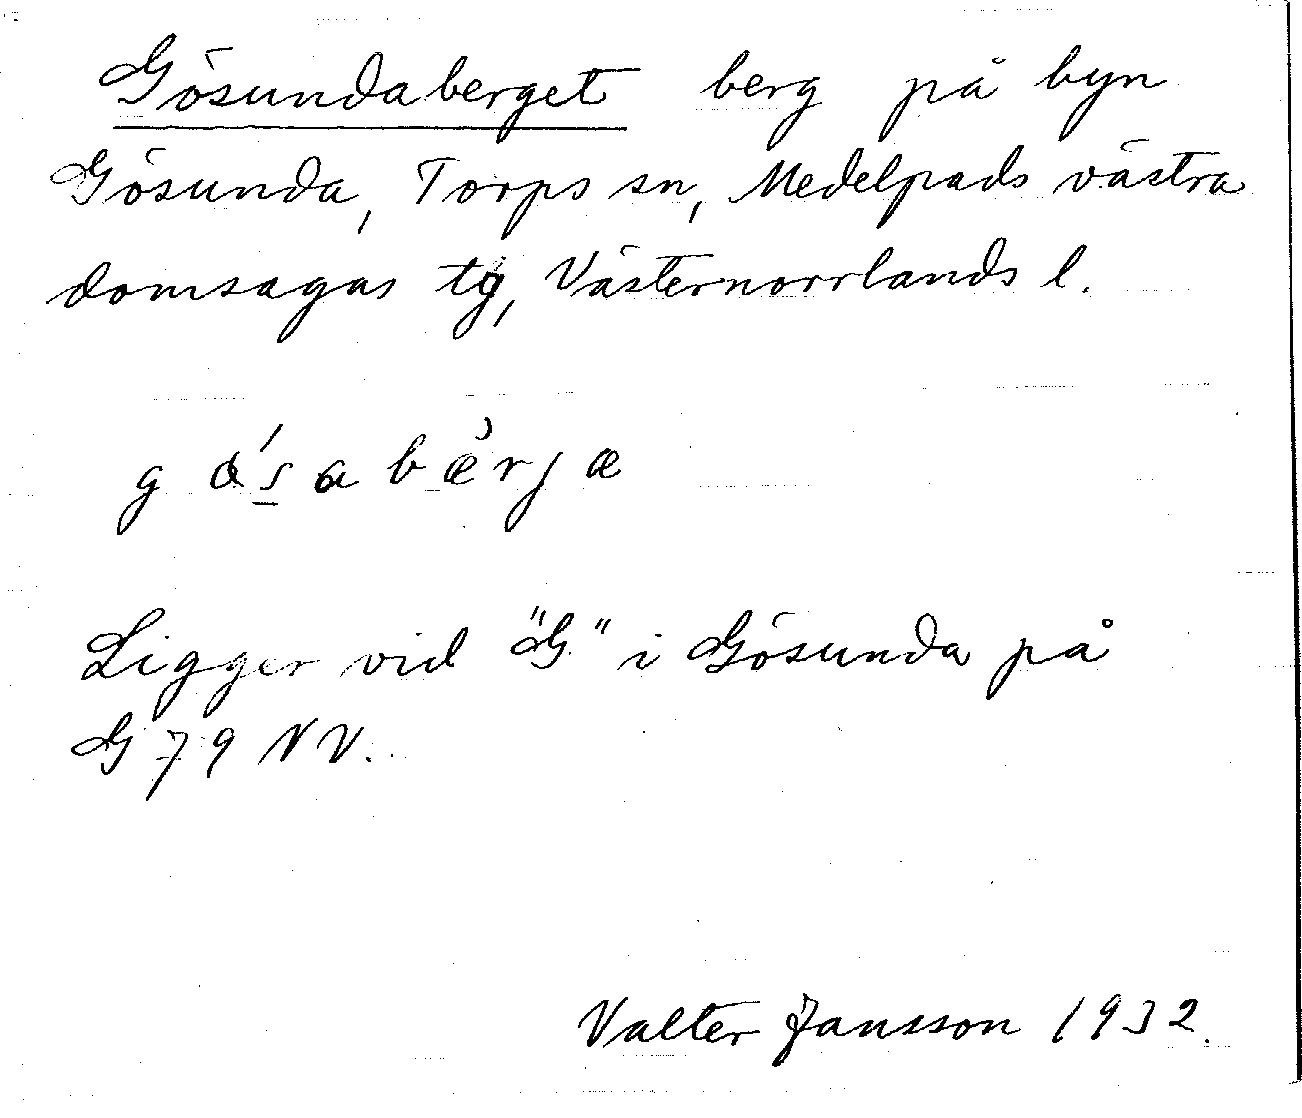 Gösundaberget berg på byn
Gösunda, Torps sn, Medelpads västra
domsagas tg, Västernorrlands l.
Ligger vid "G" i Gösunda på
G 79 NV.
Valter Jansson 1932.